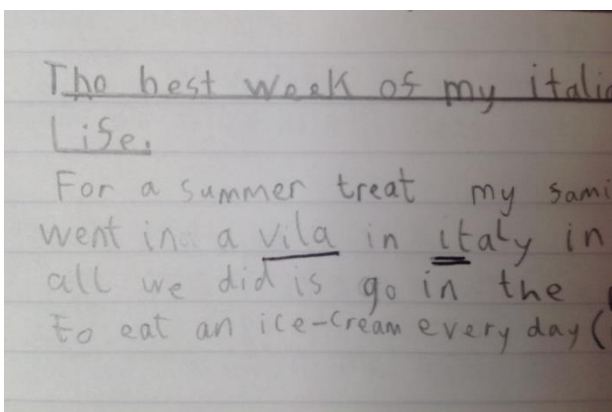 The best week of my italia
Life.
For a summer treat my fami
went in a vila in italy in
all we did is go in the
to eat an ice-cream every day (